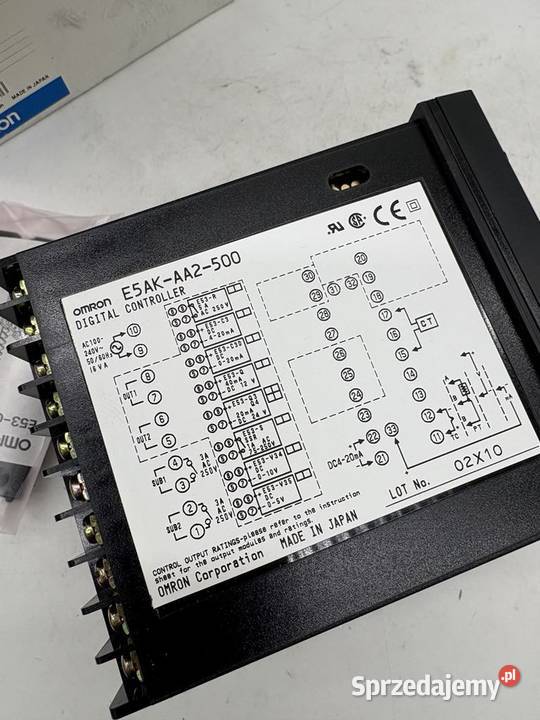 MADE IN JAPAN
OMRON
E5AK-AA2-500
DIGITAL CONTROLLER
CE
AC100-
240V~
50/60Hz
16VA
10
9
OUT1
8
7
OUT2
6
5
SUB1
4
3
3A
AC
250V
SUB2
2
1
3A
AC
250V
E53-R
5 A
AC 250V
E53-C3
DC
4-20mA
E53-C3D
DC
0-20mA
E53-Q
40mA
DC 12 V
DC 24 V
E53-V34
DC
0-10V
E53-V35
DC
0-5V
30
29
28
27
26
25
24
23
31
32
20
19
18
17
16
15
14
13
12
11
CT
22
33
21
DC4-20mA
TC
PT
mA
LOT No. 02X10
CONTROL OUTPUT RATINGS-please refer to the instruction
sheet for the output modules and ratings.
OMRON Corporation MADE IN JAPAN
Sprzedajemy.pl